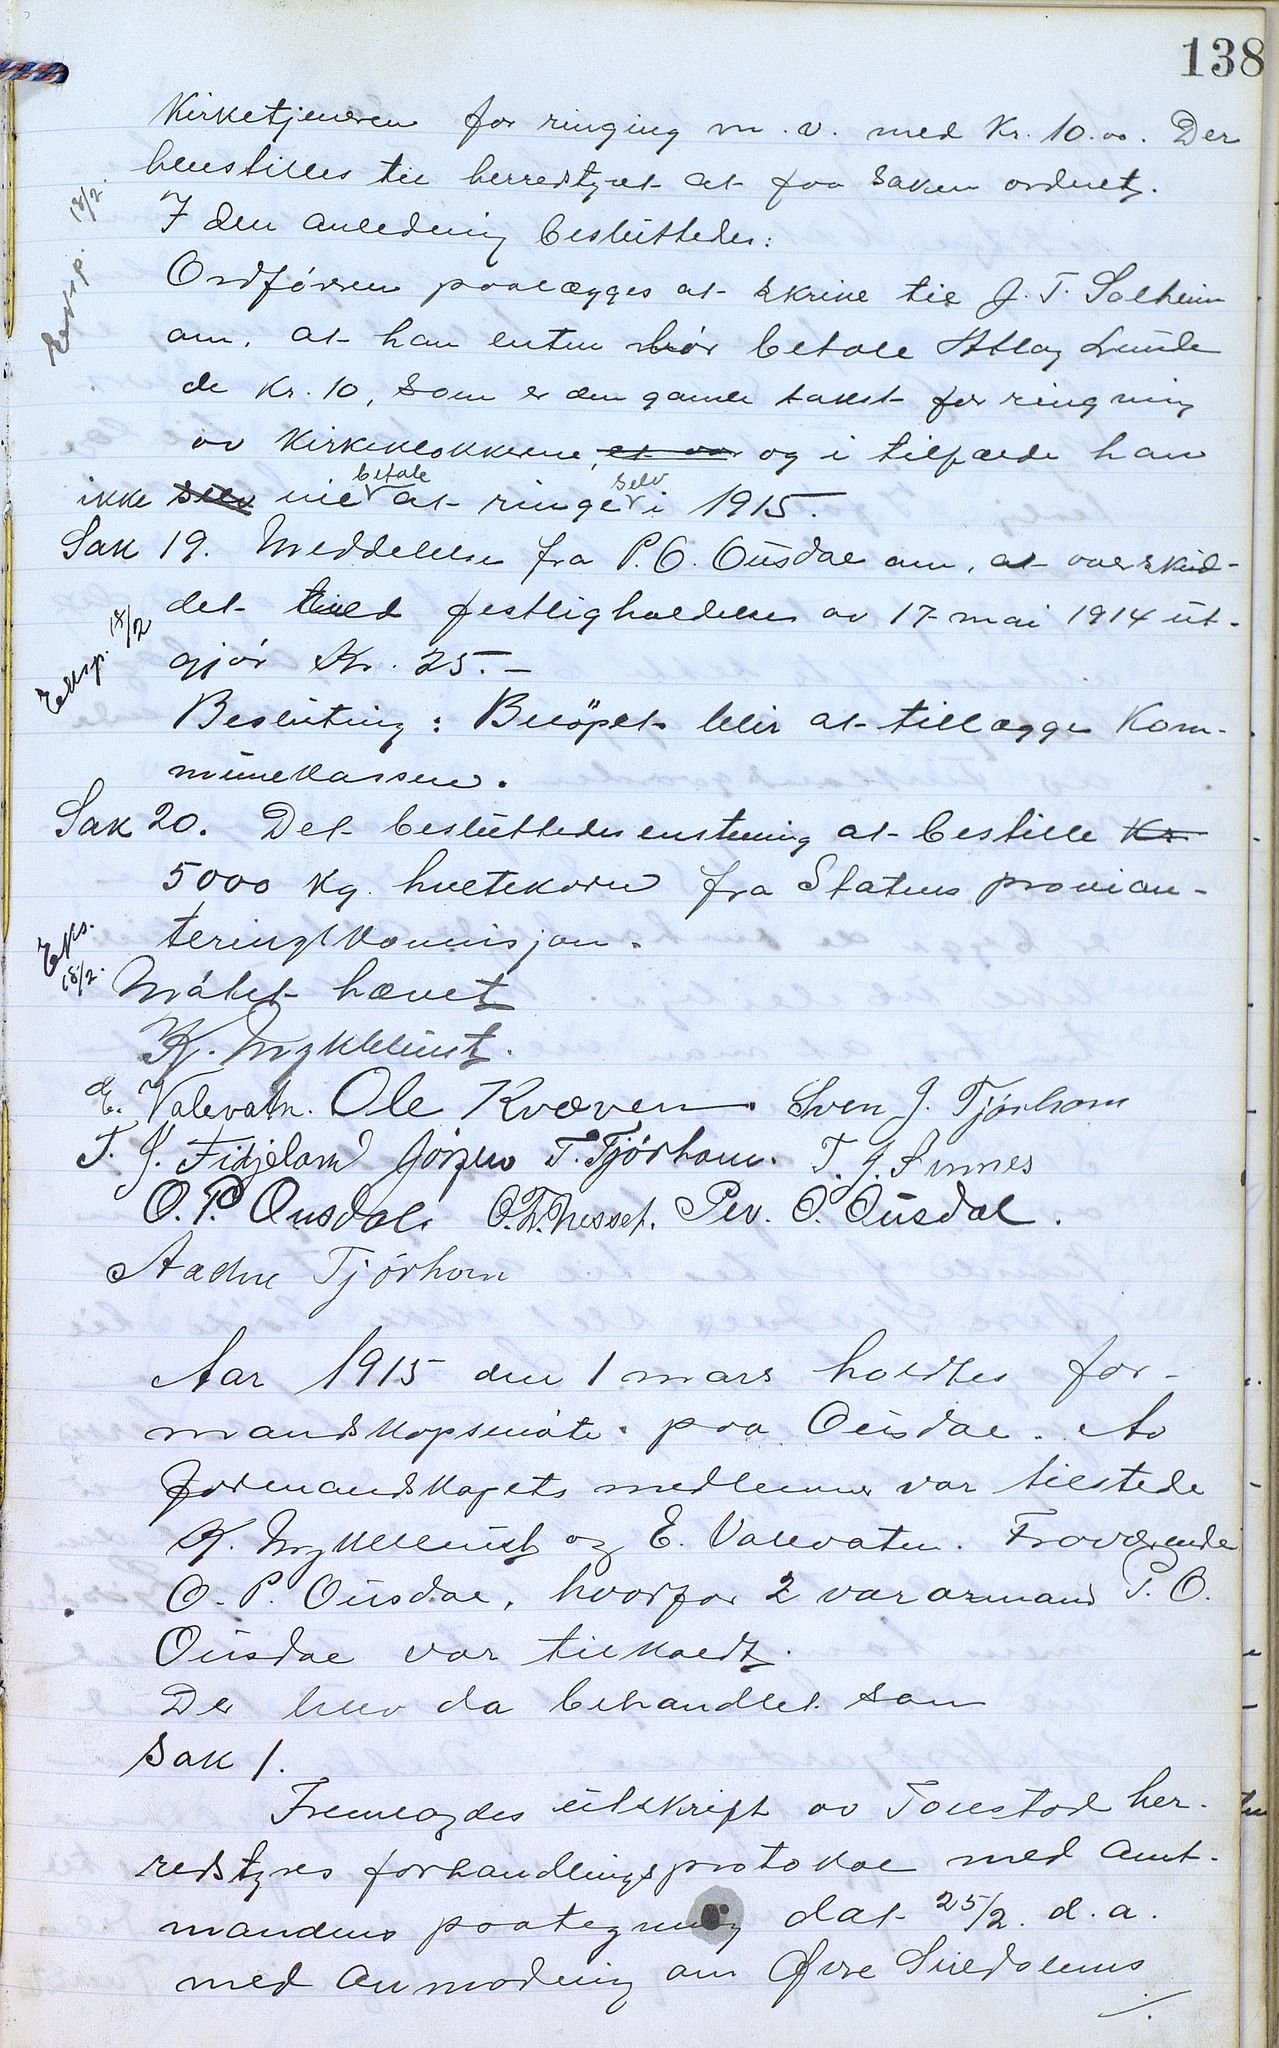 138
Kirketjeneren for ringing m. v. med Kr. 10.00. Der
henstilles til herredstyret at faa saken ordnet.
Eksp. 18/2.
I den anledning besluttedes:
Ordføreren paalægges at skrive til J. T. Solheim
om, at han enten bør betale Atlag Lunde
de Kr. 10, som er den gamle takst for ringning
av kirkeklokkerne, et var og i tilfælde han
ikke selv vil betale at ringe selv i 1915.
Sak 19. Meddelelse fra P. O. Ousdal om, at overskud-
det ved festligholdelsen av 17 mai 1914 ut-
Eksp. 18/2
gjør Kr. 25.-
Beslutning: Beløpet blir at tillægge Kom-
munekassen.
Sak 20. Det besluttedes enstemmig at bestille Kr
5000 kg. hvetekorn fra Statens provian-
Eks. 18/2.
teringskommisjon.
Møtet hævet
K. Mykleust.
E. Valevatn. Ole Kvæven. Sven J. Tjørhom
T. J. Fidjeland Jørgen T. Tjørhom. T. J. Sinnes
O. P. Ousdal. O. T. Nesset. Per. O. Ousdal.
Aadne Tjørhom
Aar 1915 den 1 mars holdtes for-
mandskapsmøte paa Ousdal. Av
formandskapets medlemmer var tilstede
K. Mykleust og E. Valevatn. Fraværende
O. P. Ousdal, hvorfor 2 vararmand P. O.
Ousdal var tilkaldt.
Der blev da behandlet som
Sak 1.
Fremlagdes utskrift av Tonstad her-
redstyres forhandlingsprotokol med amt-
mandens paategning dat. 25/2. d. a.
med anmodning om Øvre Siredalens
./.